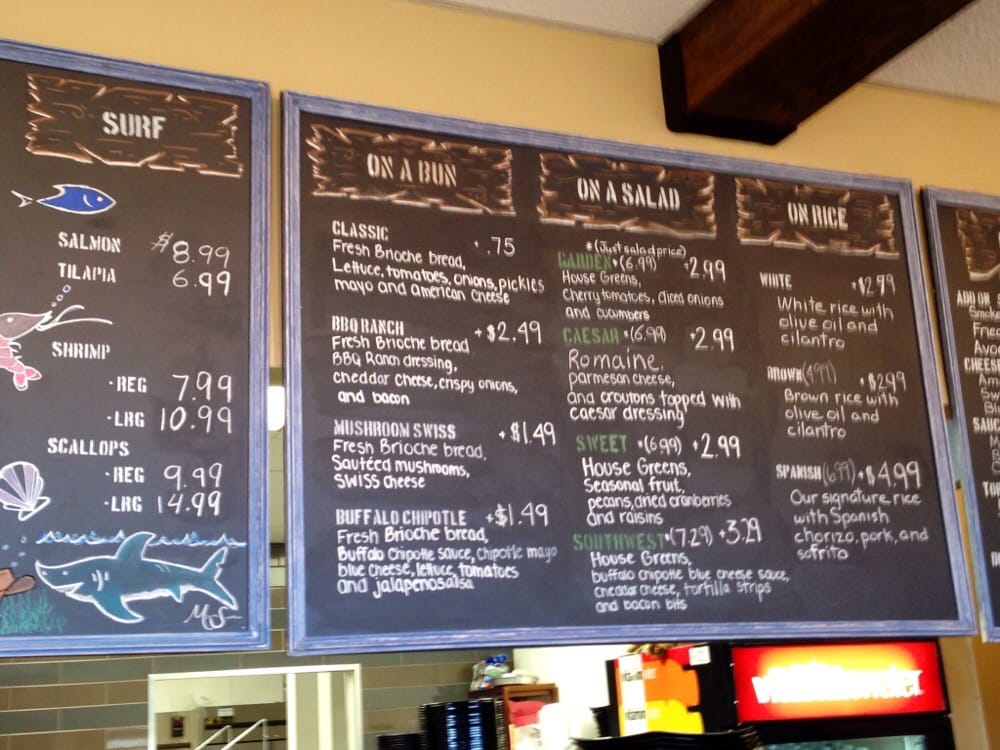 SURF
SALMON $8.99
TILAPIA 6.99
SHRIMP
·REG 7.99
·LRG 10.99
SCALLOPS
·REG 9.99
·LRG 14.99
ON A BUN
CLASSIC .75
Fresh Brioche bread,
Lettuce, tomatoes, onions, pickles
mayo and american cheese
BBQ RANCH +$2.49
Fresh Brioche bread
BBQ Ranch dressing,
cheddar cheese, crispy onions,
and bacon
MUSHROOM SWISS +$1.49
Fresh Brioche bread,
Sautéed mushrooms,
SWISS cheese
BUFFALO CHIPOTLE +$1.49
Fresh Brioche bread,
Buffalo Chipotle sauce, chipotle mayo
blue cheese, lettuce, tomatoes
and jalapeno salsa
ON A SALAD
*(Just salad price)
GARDEN *(6.99) +2.99
House Greens,
Cherry tomatoes, diced onions
and cucumbers
CAESAR *(6.99) +2.99
Romaine,
parmesan cheese,
and croutons topped with
caesar dressing
SWEET *(6.99) +2.99
House Greens,
Seasonal fruit,
pecans, dried cranberries
and raisins
SOUTHWEST *(7.29) +3.29
House Greens,
buffalo chipotle blue cheese sauce,
cheddar cheese, tortilla strips
and bacon bits
ON RICE
WHITE +$2.79
White rice with
olive oil and
cilantro
BROWN (4.99) +$2.99
Brown rice with
olive oil and
cilantro
SPANISH (6.99) +$4.99
Our signature rice
with Spanish
chorizo, pork, and
sofrito
ADD ON